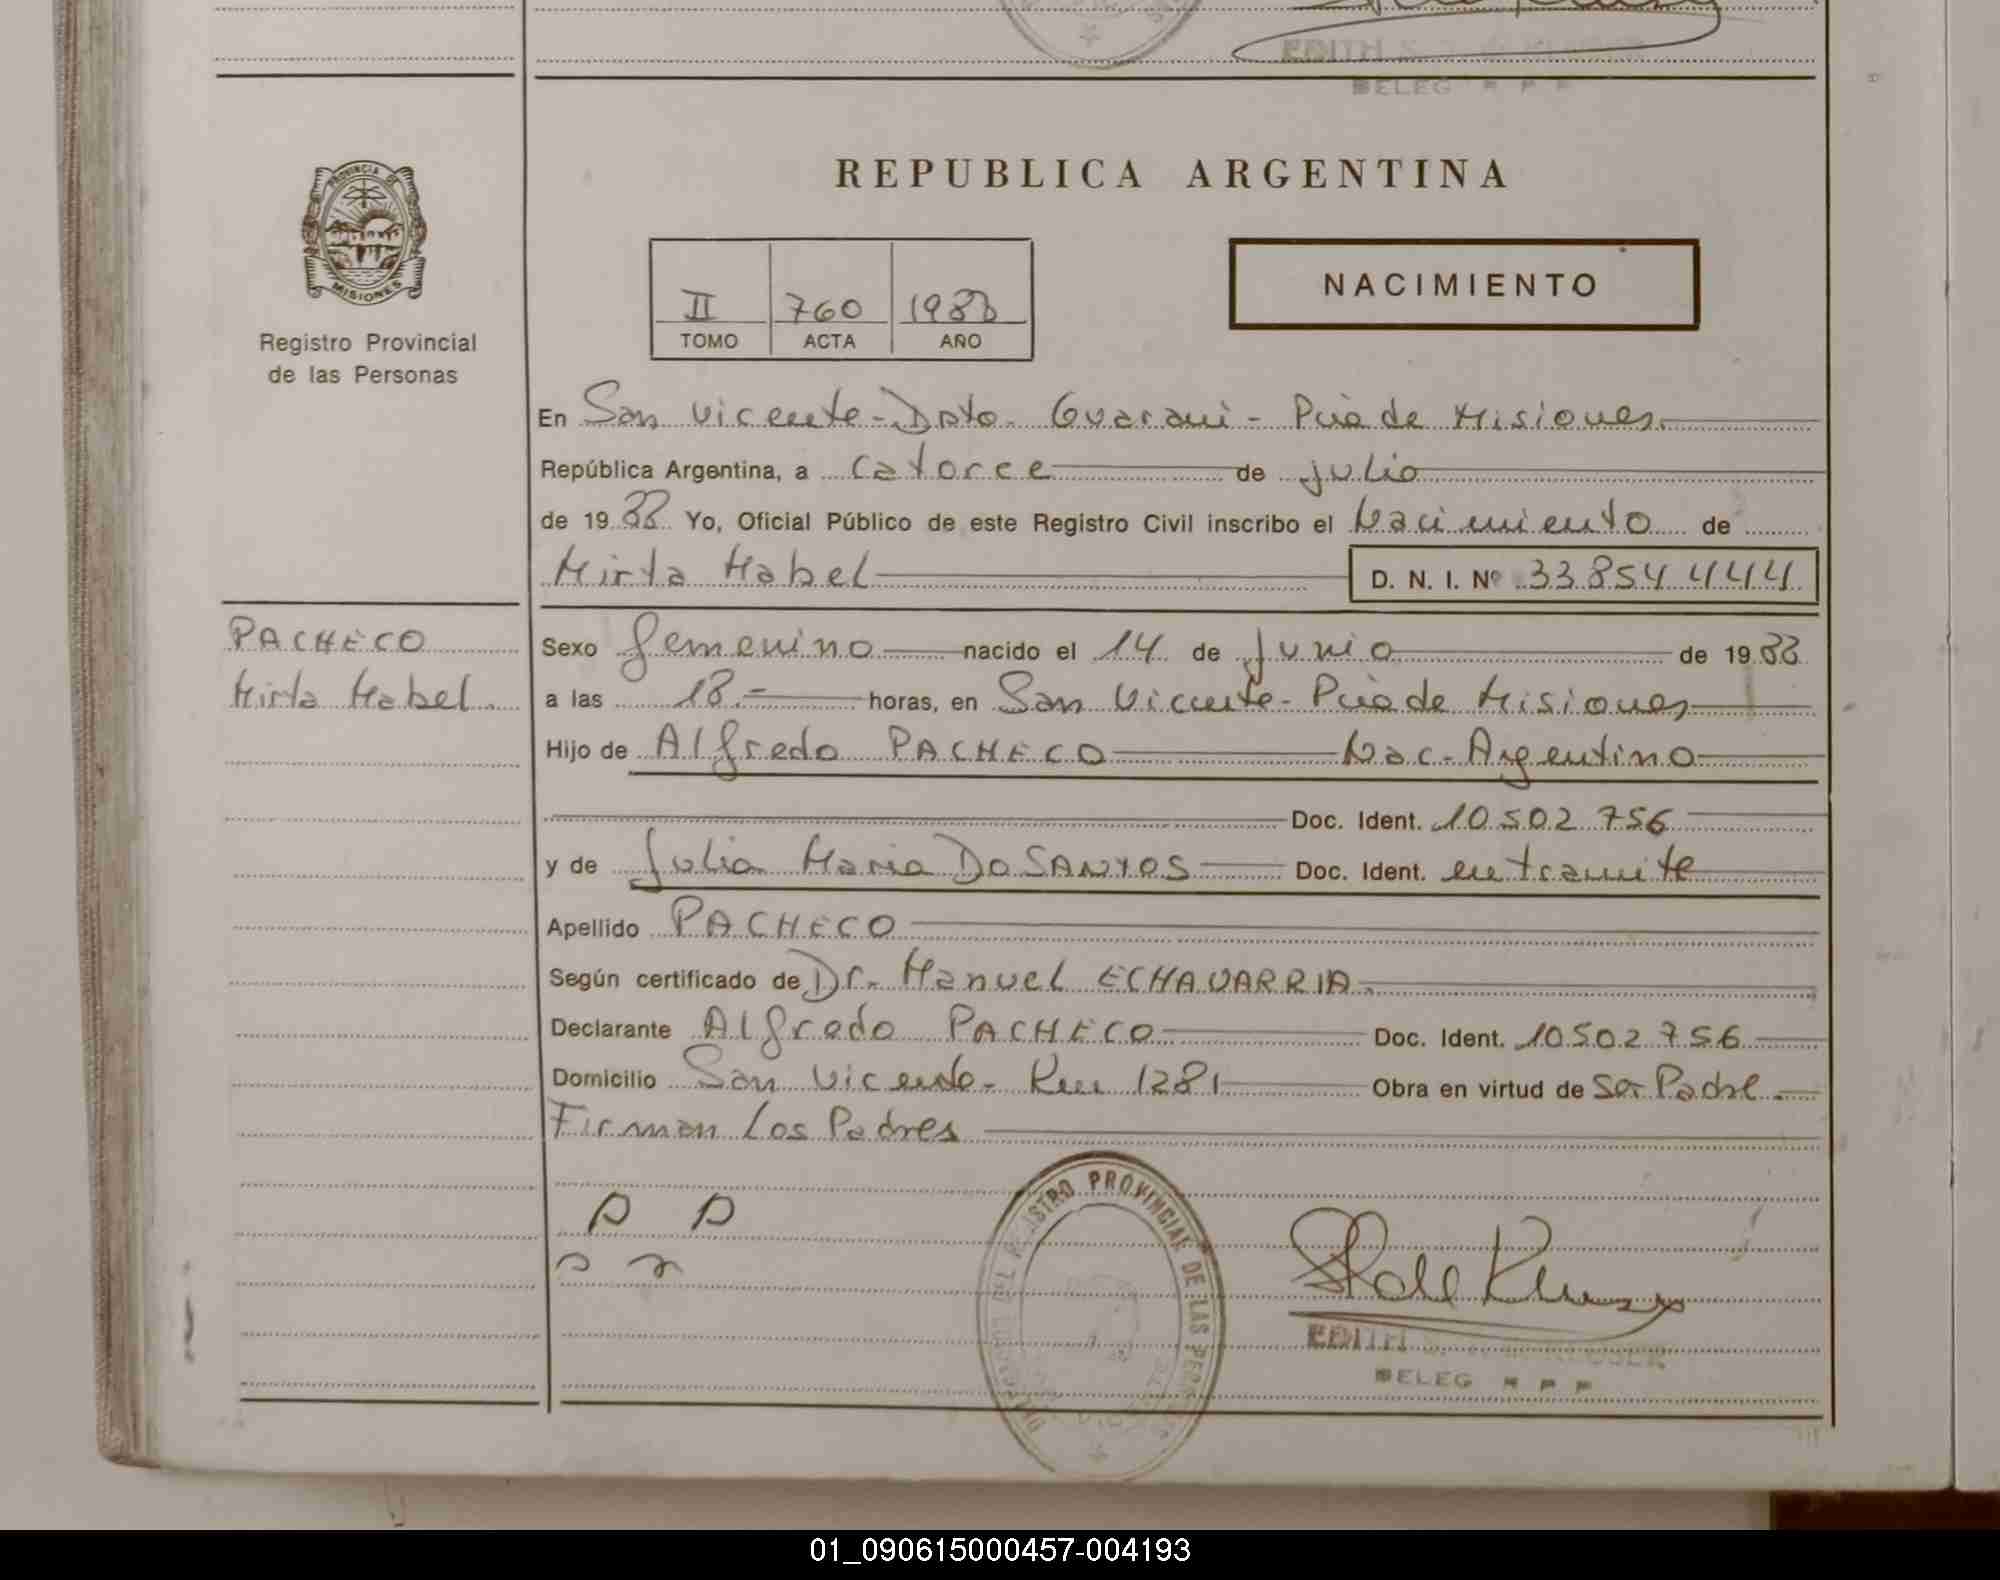 EDITH S.
BELEG R P P
PROVINCIA DE
MISIONES
Registro Provincial
de las Personas
REPUBLICA ARGENTINA
II 760 1988
TOMO ACTA AÑO
NACIMIENTO
En San Vicente - Dpto. Guarani - Pcia de Misiones.
República Argentina, a catorce de julio
de 19 88 Yo, Oficial Público de este Registro Civil inscribo el Nacimiento de
Mirta Mabel D. N. I. Nº 33.854.444
PACHECO
Mirta Mabel.
Sexo femenino nacido el 14 de Junio de 19 88
a las 18.- horas, en San Vicente - Pcia de Misiones
Hijo de Alfredo PACHECO Nac. Argentino
Doc. Ident. 10.502.756
y de Julia Maria DO SANTOS Doc. Ident. en tramite
Apellido PACHECO
Según certificado de Dr. Manuel ECHAVARRIA.
Declarante Alfredo PACHECO Doc. Ident. 10.502.756
Domicilio San Vicente - Km 1281 Obra en virtud de Ser Padre.
Firman Los Padres
DEL REGISTRO PROVINCIAL DE LAS PERSONAS
EDITH
BELEG R P P
01_090615000457-004193